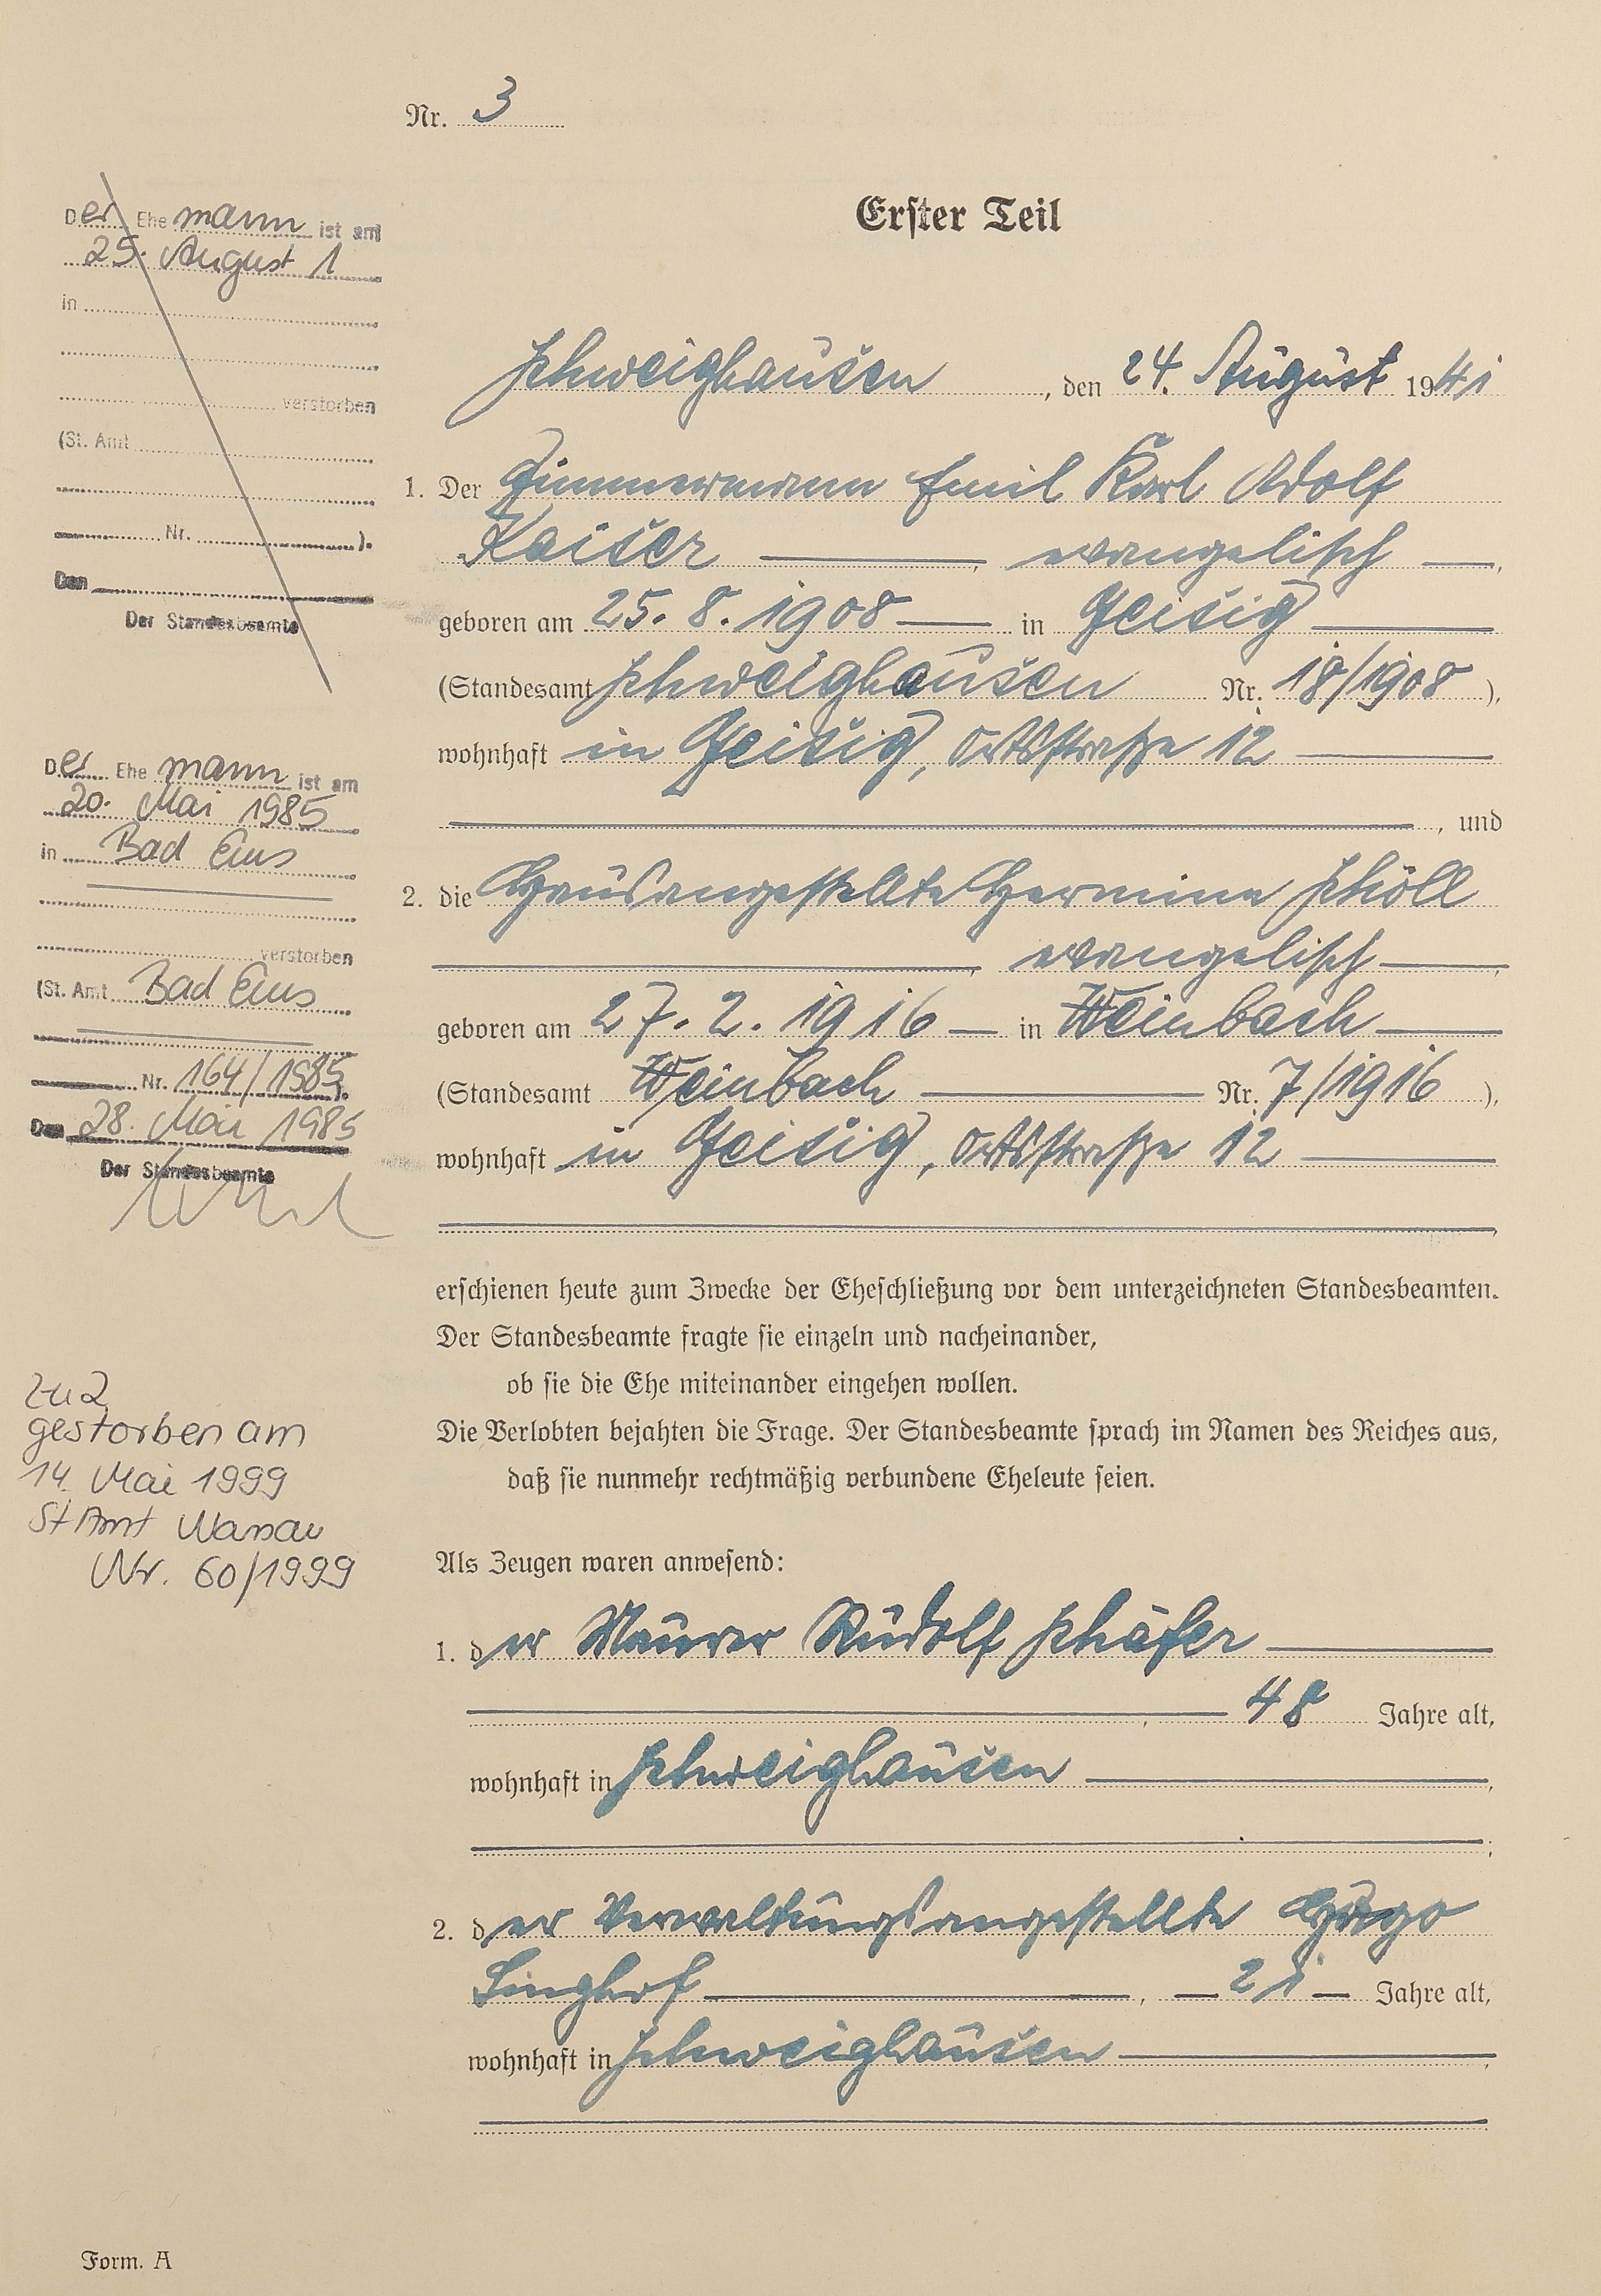 Nr. 3
Erster Teil
Schweighausen, den 24. August 1941
1. Der Zimmermann Emil Karl Adolf
Kaiser, evangelisch,
geboren am 25. 8. 1908 in Geisig
(Standesamt Schweighausen Nr. 18/1908),
wohnhaft in Geisig, Ortsstraße 12
, und
2. die Hausangestellte Hermine Schöll
, evangelisch,
geboren am 27. 2. 1916 in Weinbach
(Standesamt Weinbach Nr. 7/1916),
wohnhaft in Geisig, Ortsstraße 12
erschienen heute zum Zwecke der Eheschließung vor dem unterzeichneten Standesbeamten.
Der Standesbeamte fragte sie einzeln und nacheinander,
ob sie die Ehe miteinander eingehen wollen.
Die Verlobten bejahten die Frage. Der Standesbeamte sprach im Namen des Reiches aus,
daß sie nunmehr rechtmäßig verbundene Eheleute seien.
Als Zeugen waren anwesend:
1. der Maurer Rudolf Schäfer
, 48 Jahre alt,
wohnhaft in Schweighausen,
;
2. der Verwaltungsangestellte Hugo
Singhof, 21 Jahre alt,
wohnhaft in Schweighausen,
Form. A
Der Ehemann ist am
25. August 1
in
verstorben
(St. Amt
Nr. ).
Den
Der Standesbeamte
Der Ehemann ist am
20. Mai 1985
in Bad Ems
verstorben
(St. Amt Bad Ems
Nr. 164/1985).
Den 28. Mai 1985
Der Standesbeamte
Zu 2
gestorben am
14. Mai 1999
StAmt Nassau
Nr. 60/1999